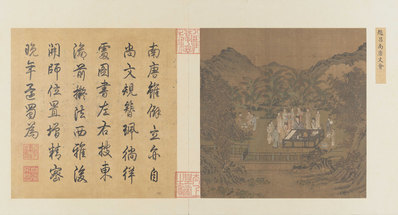 趙昌南唐文會
南唐雖僻立亦自
尚文規簪珮徜徉
處圖書左右披東
前擬法西雅後
開師位置增精密
晚年還蜀為